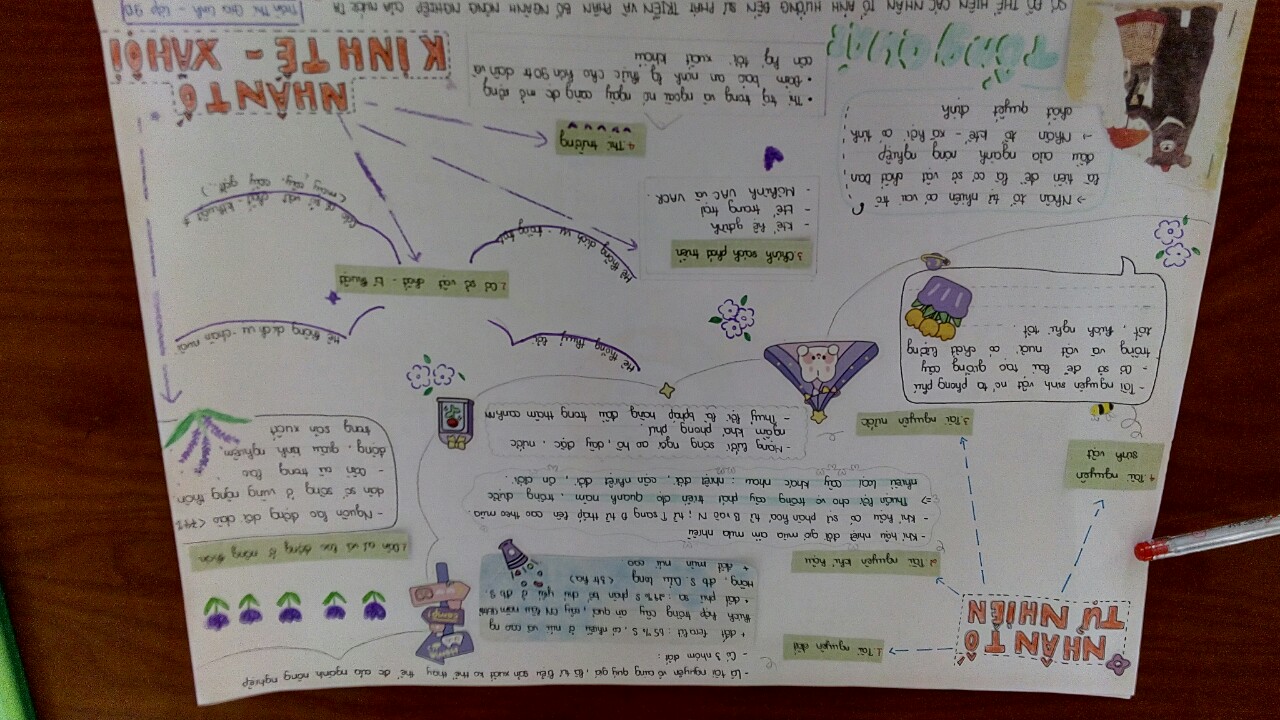 NHÂN TỐ
TỰ NHIÊN
1. Tài nguyên đất
- Là tài nguyên vô cùng quý giá, là tư liệu sản xuất ko thể thay thế đc của ngành nông nghiệp
- Có 3 nhóm đất:
+ đất feralit: 65% S, có nhiều ở núi và cao ng
thích hợp trồng cây ăn quả, cây CN lâu năm
+ đất phù sa: 24% S phân bố chủ yếu ở đb S
Hồng, đb S Cửu Long
+ đất mùn núi cao
2. Tài nguyên khí hậu
- Khí hậu nhiệt đới gió mùa ẩm mưa nhiều
- Khí hậu có sự phân hóa từ B vào N; từ T sang Đ từ thấp lên cao theo mùa.
=> Thuận lợi cho việc trồng cây phát triển đc quanh năm, trồng được
nhiều loại cây khác nhau: nhiệt đới, cận nhiệt đới, ôn đới.
3. Tài nguyên nước
- Mạng lưới sông ngòi ao hồ, dày đặc, nước
ngầm khá phong phú.
- Thủy lợi là bpháp hàng đầu trong thâm canh
4. Tài nguyên
sinh vật
- Tài nguyên sinh vật nc ta phong phú
- Cơ sở để lai tạo giống cây
trồng và vật nuôi có chất lượng
tốt, thích nghi tốt.
1. Dân cư và lao động ở nông thôn
- Nguồn lao động dồi dào
dân số sống ở vùng nông thôn
- Cần cù trong lao
động, giàu kinh nghiệm
trong sản xuất
2. Cơ sở vật chất - kĩ thuật
Hệ thống thủy lợi
Hệ thống dịch vụ - chăn nuôi
Hệ thống dịch vụ - trồng trọt
Các cơ sở vật chất - kĩ thuật ≠
(máy cày, cấy gặt..)
3. Chính sách phát triển
- ktế hộ gđình
- ktế trang trại
- Mô hình VAC và VACR
4. Thị trường
• Thị trg trong và ngoài nc ngày càng đc mở rộng
• Đảm bảo an ninh lg thực cho hơn 90tr dân và
còn hg tới xuất khẩu
NHÂN TỐ
KINH TẾ - XÃ HỘI
Tổng quát
-> Nhân tố tự nhiên có vai trò
là tiền đề là cơ sở vật chất ban
đầu của ngành nông nghiệp
-> Nhân tố ktế - xã hội có tính
chất quyết định
SƠ ĐỒ THỂ HIỆN CÁC NHÂN TỐ ẢNH HƯỞNG ĐẾN SỰ PHÁT TRIỂN VÀ PHÂN BỐ NGÀNH NÔNG NGHIỆP CỦA NƯỚC TA